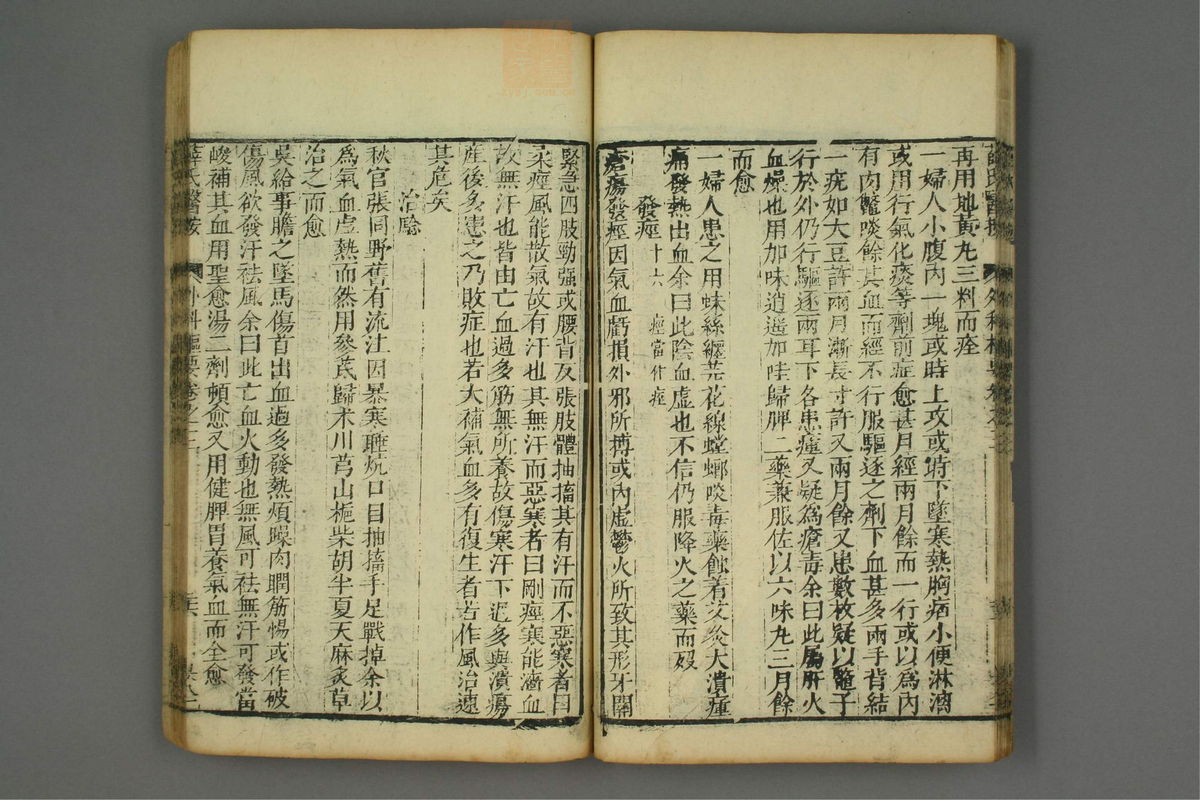 再用地黃丸三料而痊
一婦人小腹內一塊或時上攻或時下墜寒熱胸痞小便淋滴
或用行氣化痰等劑前症愈甚月經兩月餘而一行或以為內
有肉鱉啖餘其血而經不行服驅逐之劑下血甚多兩手背結
一疣如大豆許兩月漸長寸許又兩月餘又患數枚疑以鱉子
行於外仍行驅逐兩耳下各患瘡又疑為瘡毒余曰此屬肝火
血燥也用加味逍遙加味歸脾二藥兼服佐以六味丸三月餘
而愈
一婦人患之用蛛絲纏芫花線螳螂啖毒藥蝕着艾灸大潰腫
痛發熱出血余曰此陰血虛也不信仍服降火之藥而歿
發痙十六 痙當作痓
瘡瘍發痙因氣血虧損外邪所搏或內虛鬱火所致其形牙關
緊急四肢勁强或腰背反張肢體抽搐其有汗而不惡寒者曰
柔痙風能散氣故有汗也其無汗而惡寒者曰剛痙寒能濇血
故無汗也皆由亡血過多筋無所養故傷寒汗下過多與潰瘍
產後多患之乃敗症也若大補氣血多有復生者若作風治速
其危矣
治驗
秋官張同野舊有流注因暴寒睡炕口目抽搐手足戰掉余以
為氣血虛熱而然用參芪歸朮川芎山梔柴胡半夏天麻炙草
治之而愈
吳給事膽之墜馬傷首出血過多發熱煩噪肉瞤筋惕或作破
傷風欲發汗袪風余曰此亡血火動也無風可袪無汗可發當
峻補其血用聖愈湯二劑頓愈又用健脾胃養氣血而全愈
薛氏醫按 外科樞要卷之三